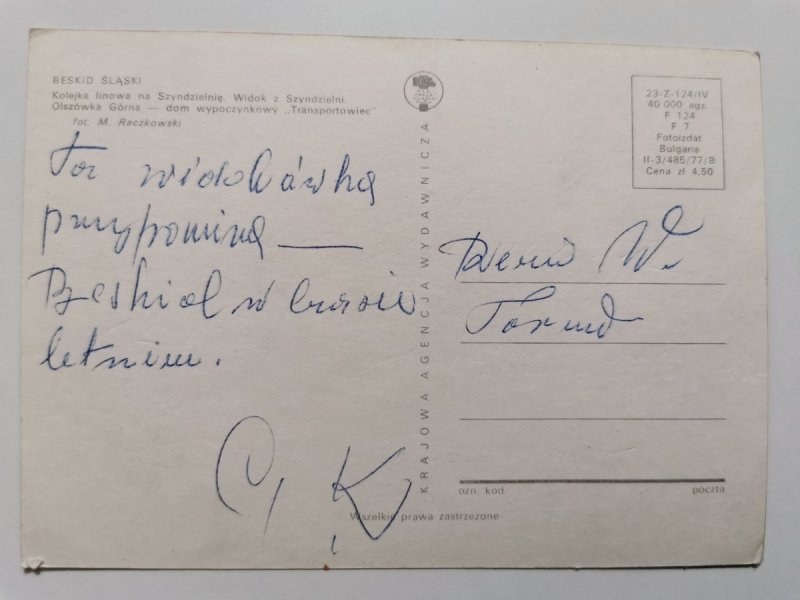 BESKID ŚLĄSKI
Kolejka linowa na Szyndzielnię. Widok z Szyndzielni.
Olszówka Górna — dom wypoczynkowy „Transportowiec"
fot. M. Raczkowski
Ta widokówka
przypomina —
Beskid w czasie
letnim.
G K
KRAJOWA AGENCJA WYDAWNICZA
23-Z-124/IV
40 000 egz.
P 124
F 7
Fotoizdat
Bulgaria
II-3/485/77/B
Cena zł 4,50
W.
ozn. kod
poczta
Wszelkie prawa zastrzeżone